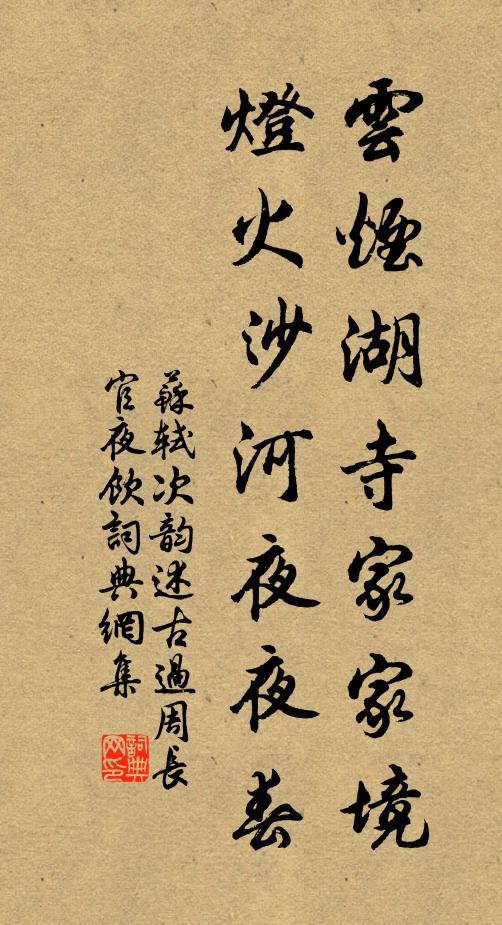 雲煙湖寺家家境
燈火沙河夜夜春
蘇軾次韵述古過周長
官夜飲詞典網集
詞典
网印